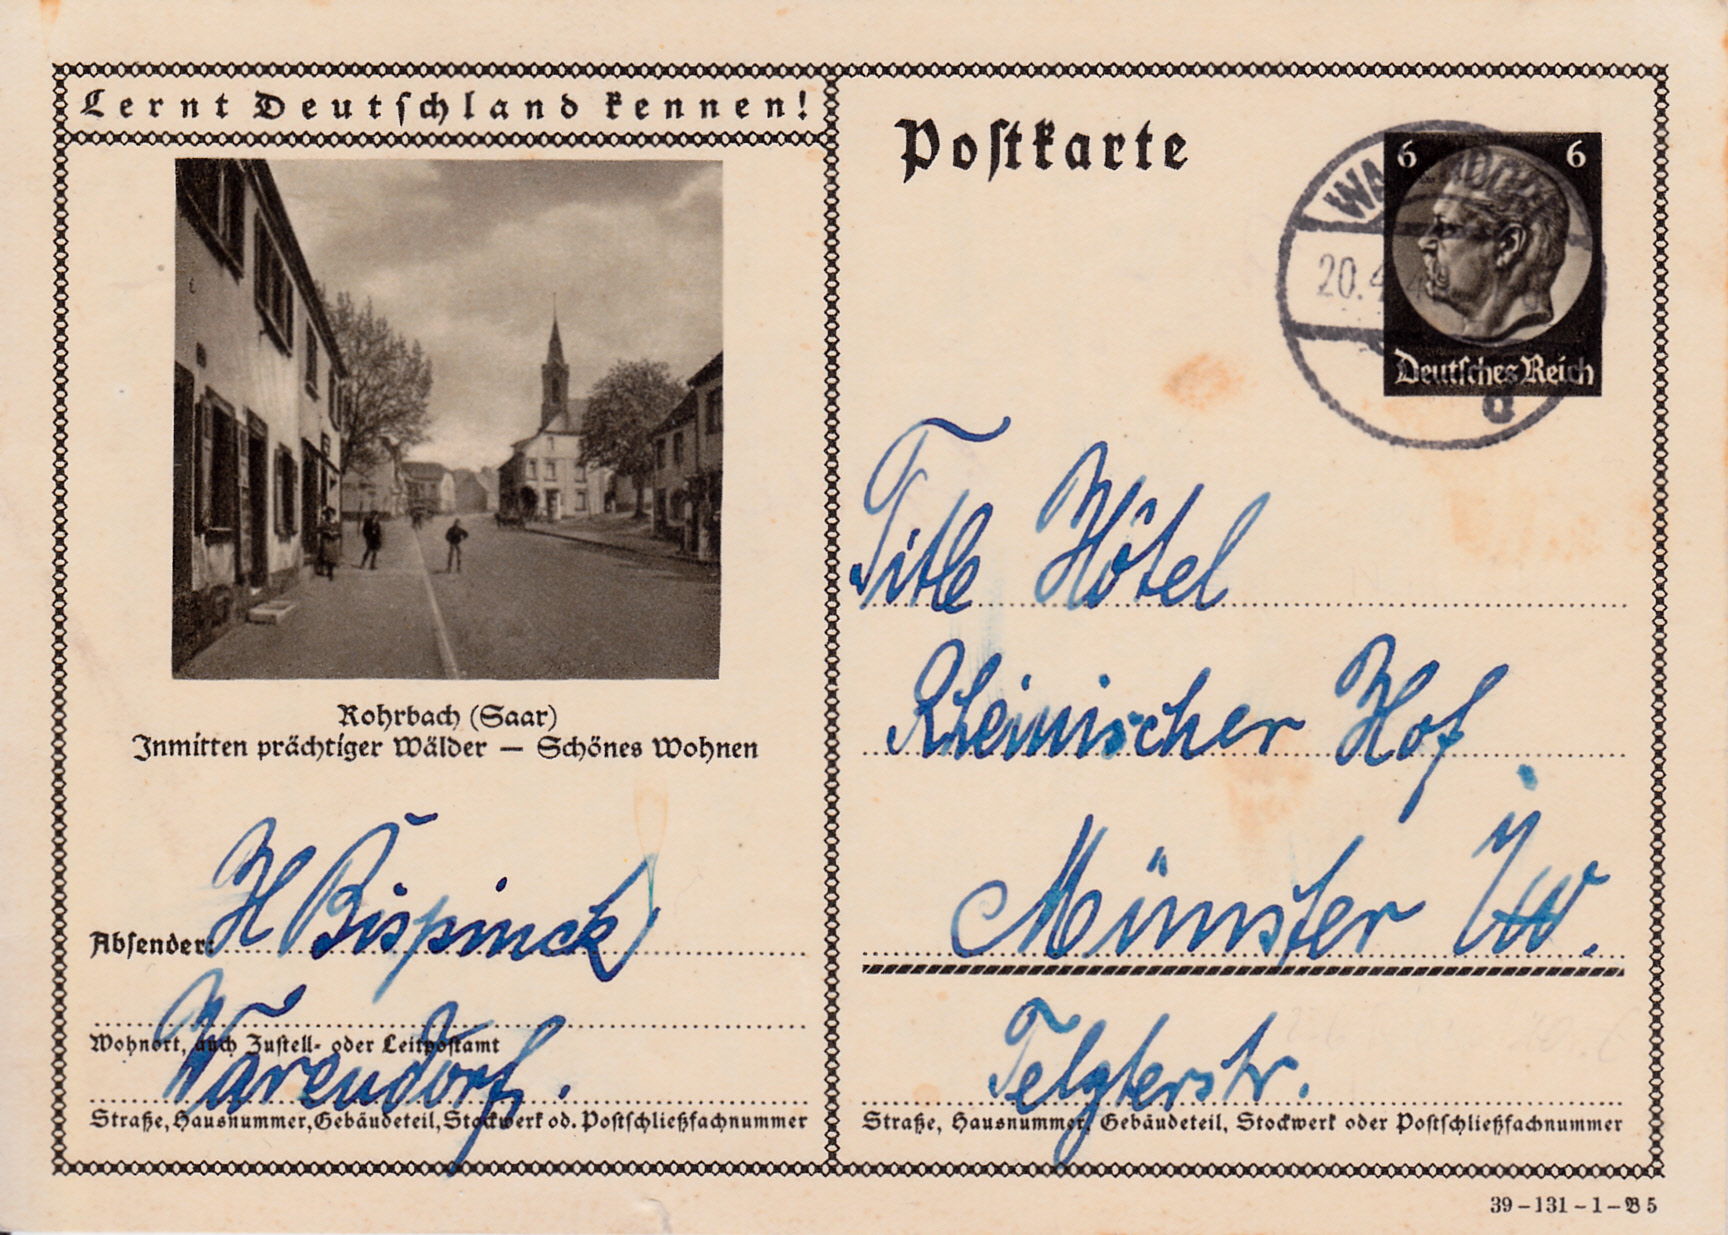 Lernt Deutschland kennen!
Rohrbach (Saar)
Inmitten prächtiger Wälder — Schönes Wohnen
Absender: H Bispinck
Warendorf.
Wohnort, auch Zustell- oder Leitpostamt
Straße, Hausnummer, Gebäudeteil, Stockwerk od. Postschließfachnummer
Postkarte
6 6
Deutsches Reich
20.4
d
Hôtel
Rheinischer Hof
Münster i/W.
Telgterstr.
Straße, Hausnummer, Gebäudeteil, Stockwerk oder Postschließfachnummer
39-131-1-B5